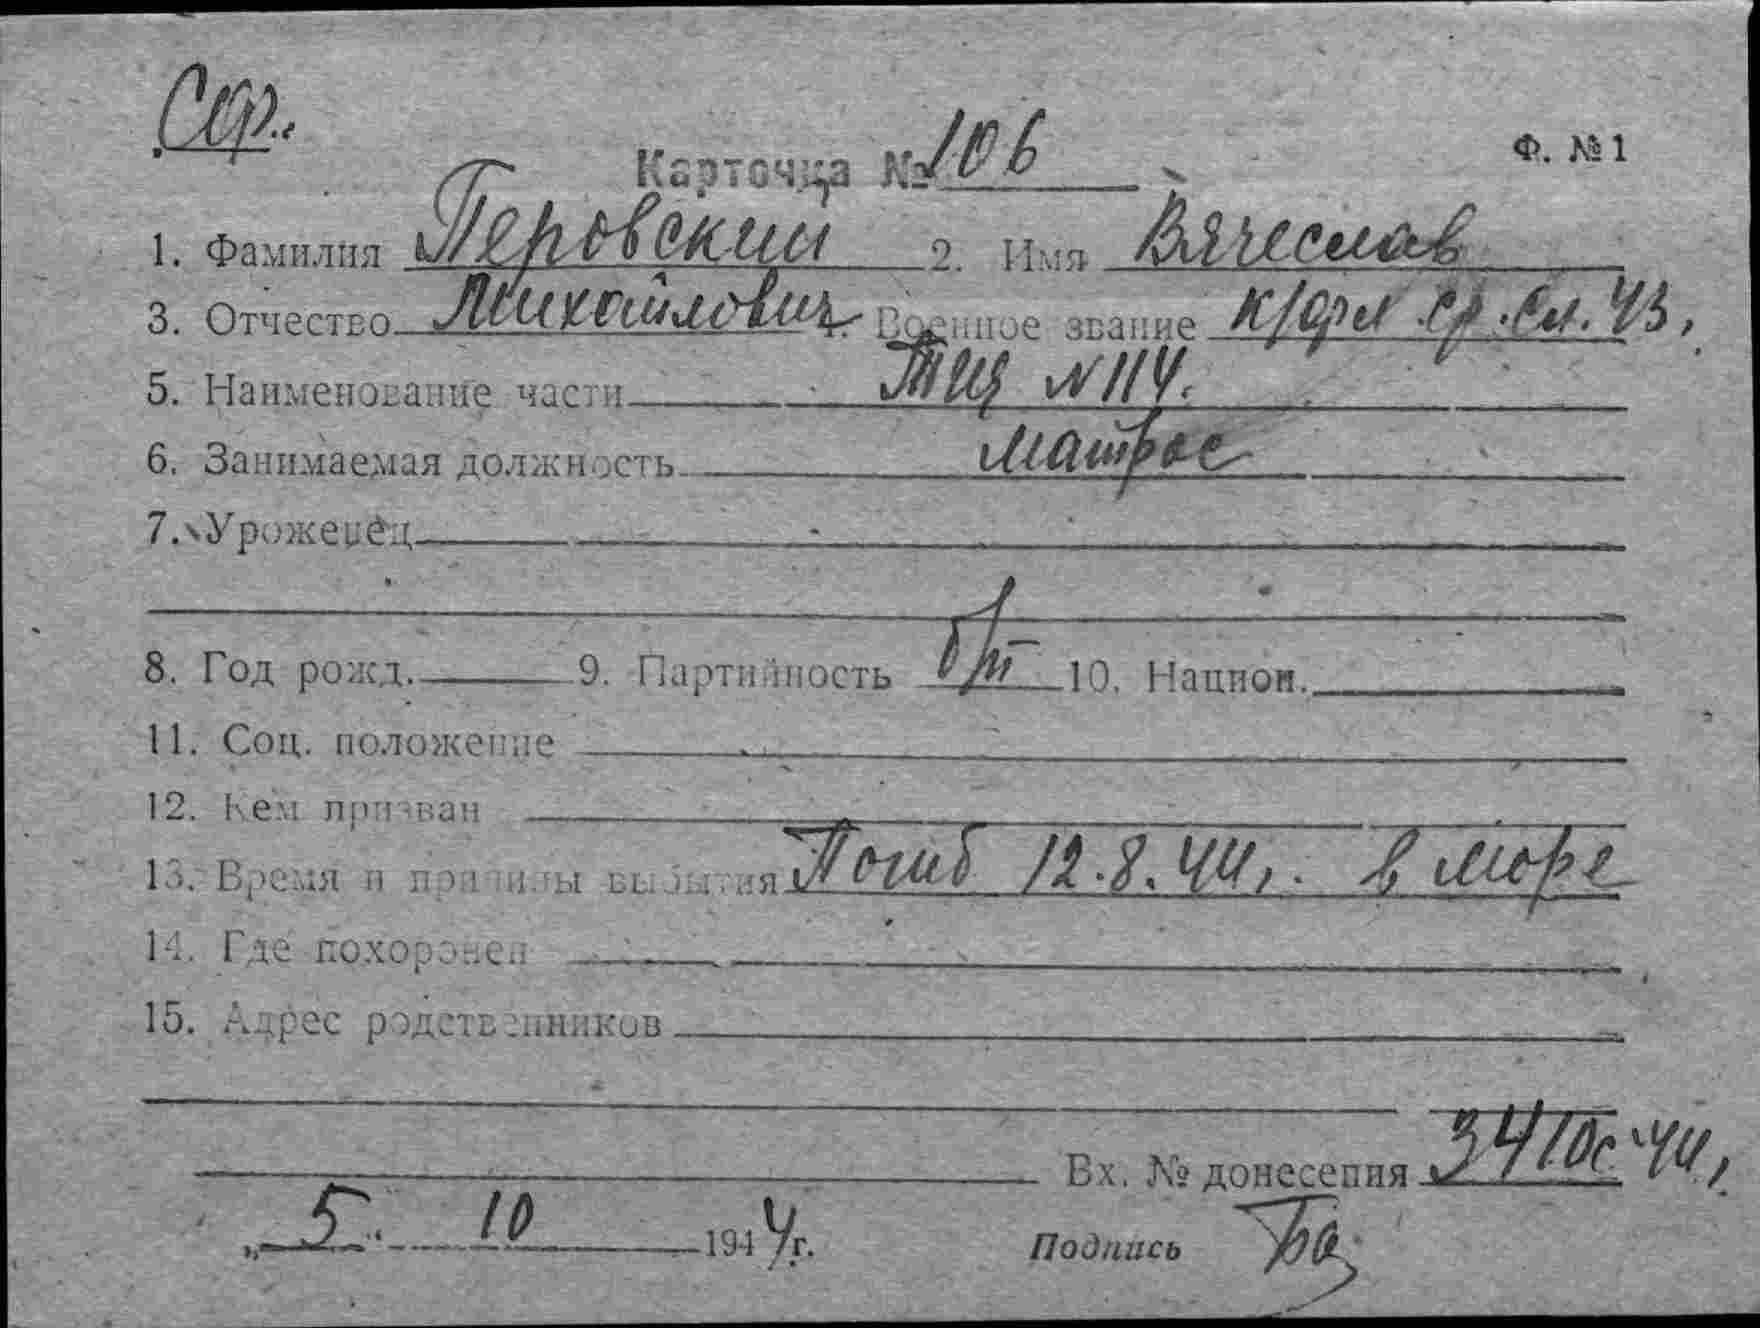 Карточка № 106
Ф. № 1
1. Фамилия Перовский 2. Имя Вячеслав
3. Отчество Михайлович 4. Военное звание к/фл ср. сл. 43,
5. Наименование части ТЩ № 114.
6. Занимаемая должность матрос
7. Уроженец
8. Год рожд. 9. Партийность б/п 10. Национ.
11. Соц. положение
12. Кем призван
13. Время и причины выбытия Погиб 12.8.44, в море
14. Где похоронен
15. Адрес родственников
Вх. № донесения 341 44,
„ 5. 10 1944 г.
Подпись